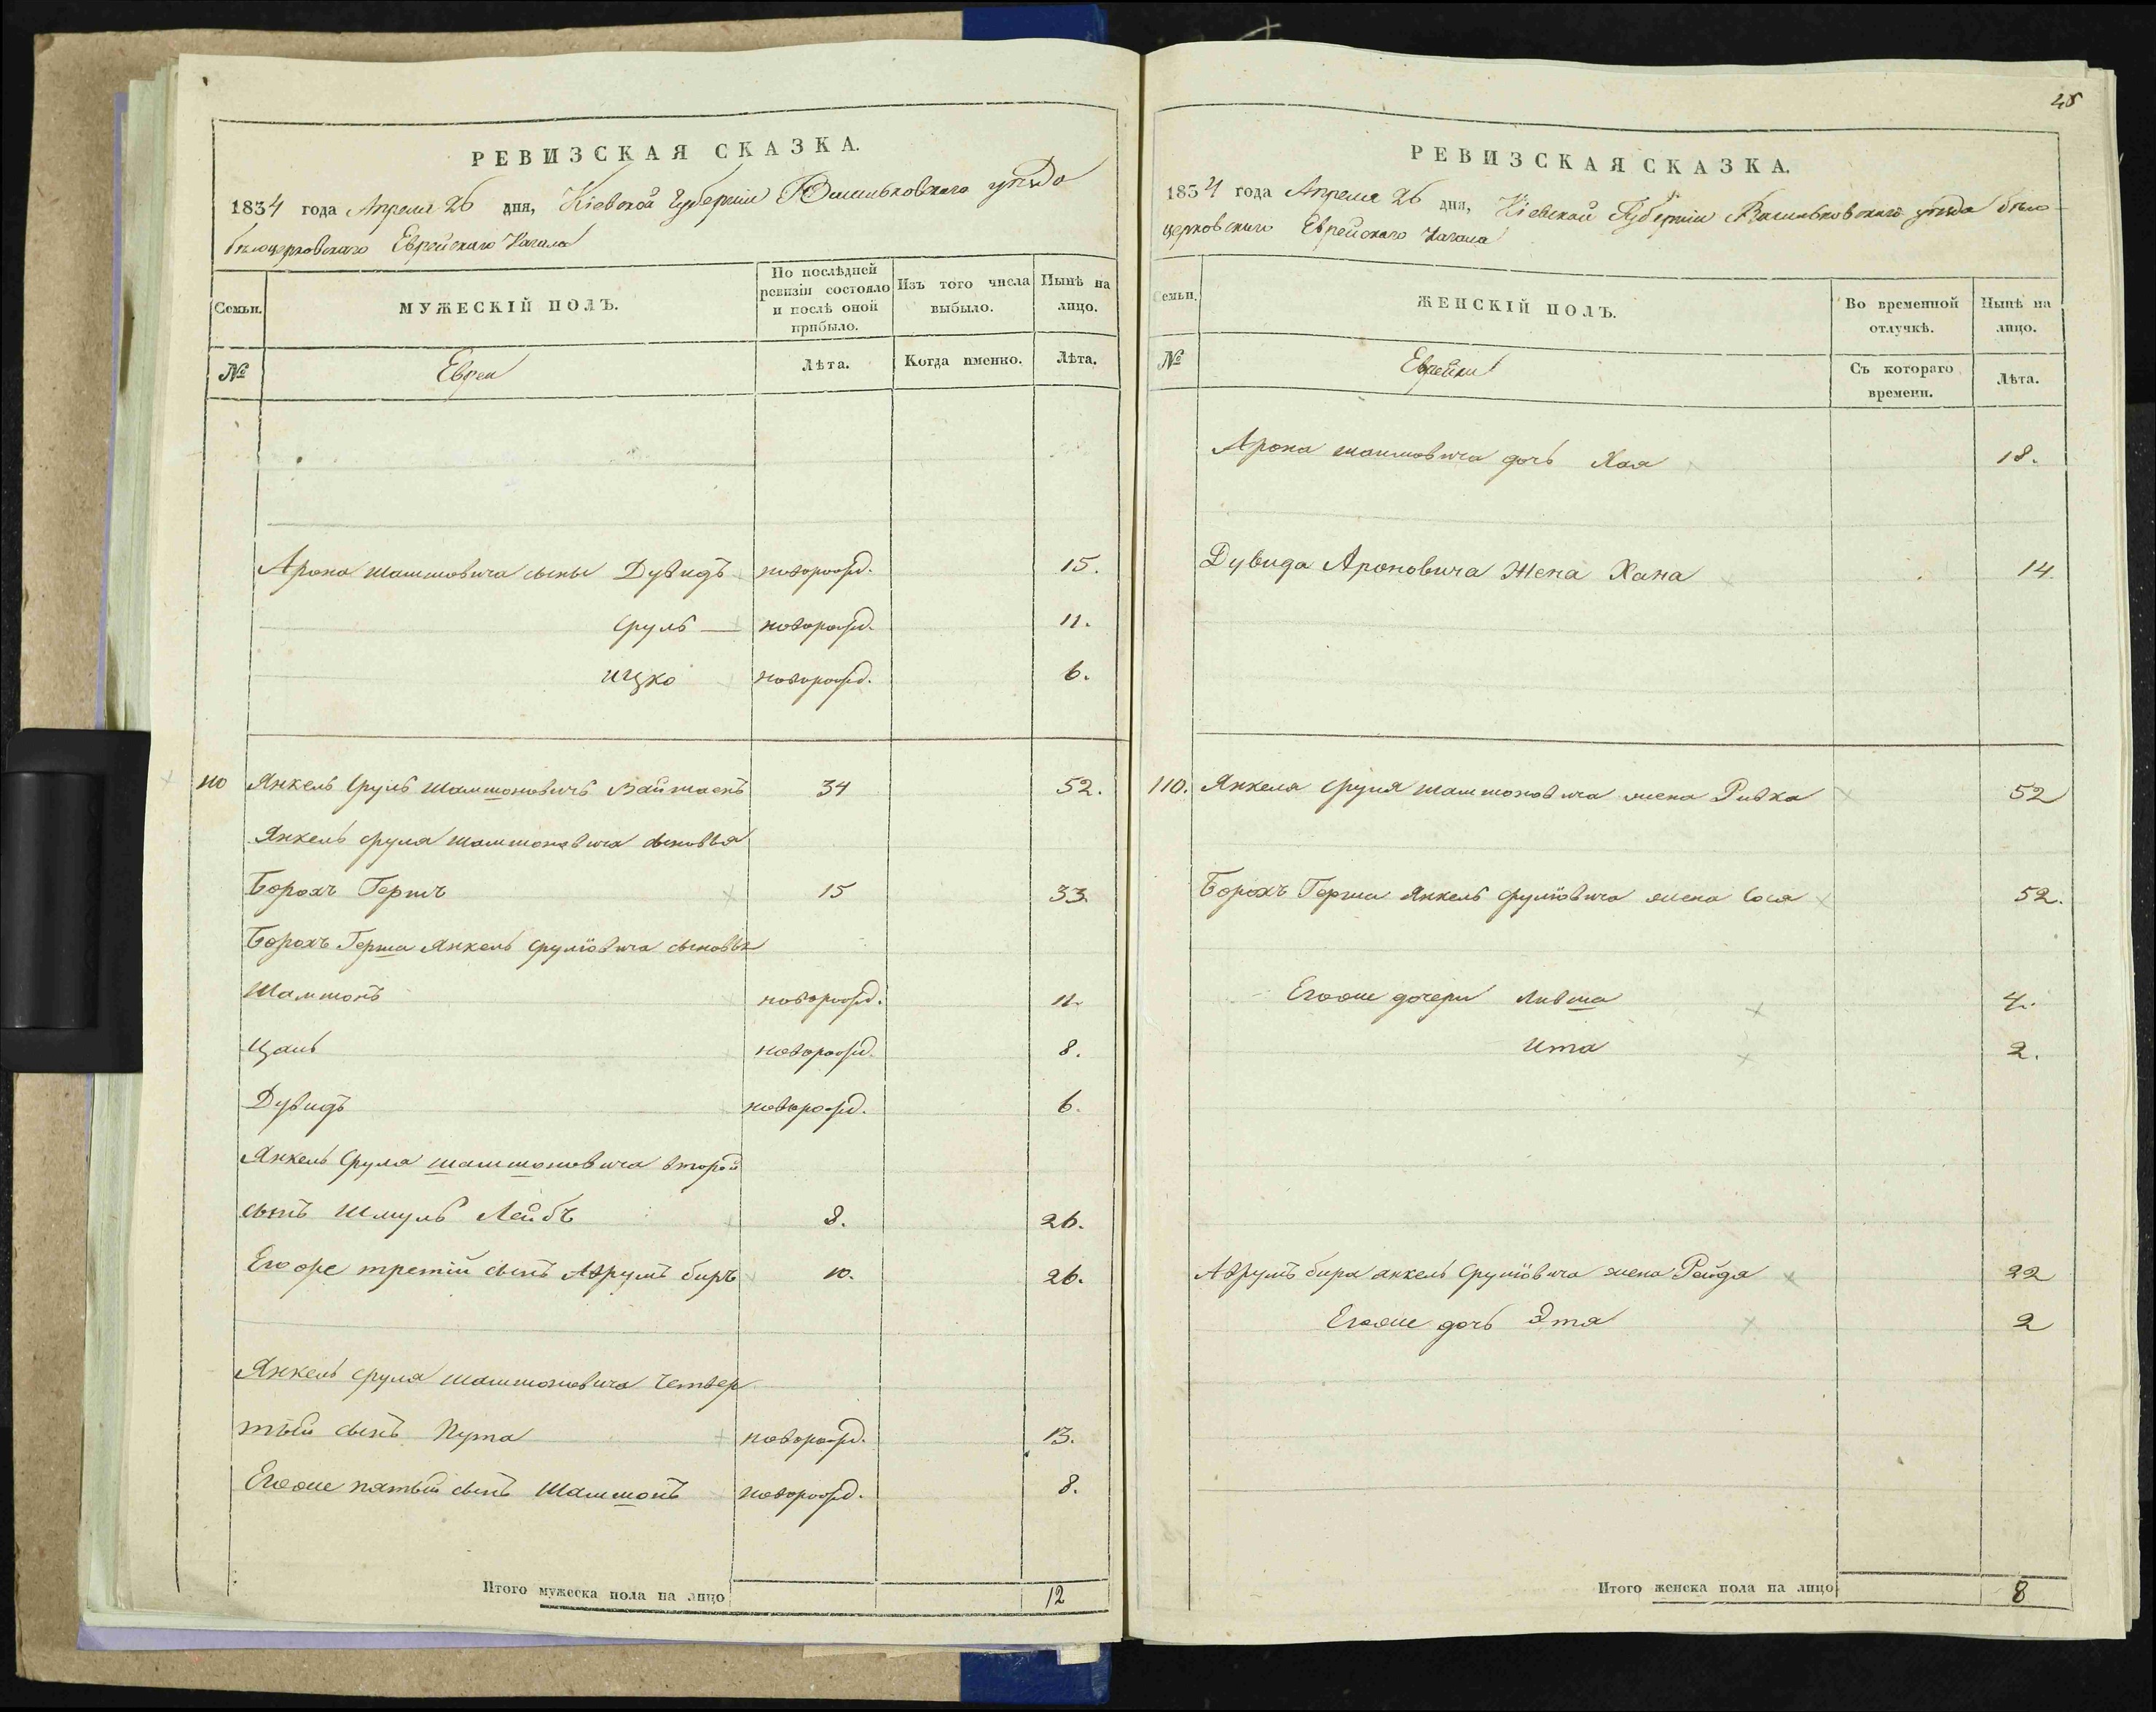 РЕВИЗСКАЯ СКАЗКА.
1834 года Апреля 26 дня, Кіевской Губерніи Васильковского уѣзда
бѣлоцерковского Еврейскаго Кагала
Семьи.
МУЖЕСКІЙ ПОЛЪ.
По послѣдней ревизіи состояло и послѣ оной прибыло.
Изъ того числа выбыло.
Нынѣ на лицо.
№
Евреи
Лѣта.
Когда именно.
Лѣта.
Арона Шашмовича сыны Дувидъ новорожд. 15.
Сруль — новорожд. 11.
ицко новорожд. 6.
110 Янкель Сруль Шамшоновичь 34 52.
Янкель сруля шамшоновича сыновья
Борохъ Гершъ 15 33.
Борохъ Герша Янкель Срулїовича сыновья
Шамшонъ новорожд. 11.
новорожд. 8.
Дувидъ новорожд. 6.
Янкель Сруля шамшоновича второй
сынъ Шмуль Лейбъ 8. 26.
Егоже третій сынъ Аврумъ беръ 10. 26.
Янкель сруля шамшоновича четвер
тый сынъ новорожд. 13.
Егоже пятый сынъ Шамшонъ новорожд. 8.
Итого мужеска пола на лицо 12
48
РЕВИЗСКАЯ СКАЗКА.
1834 года Апреля 26 дня, Кіевской Губерніи Васильковского уѣзда бѣло-
церковского Еврейскаго Кагала
Семьи.
ЖЕНСКІЙ ПОЛЪ.
Во временной отлучкѣ.
Нынѣ на лицо.
№
Еврейки
Съ котораго времени.
Лѣта.
Арона шашмовича дочь Хая 18.
Дувида Ароновича Жена Хана 14
110. Янкеля сруля шамшоновича жена Ривка 52
Борохъ Герша Янкель срулїовича жена Сося 52.
Егоже дочери Ливша 4.
Ита 2.
Аврумъ бера анкель Срулїовича жена Рейда 22
Егоже дочь Эта 2
Итого женска пола на лицо 8